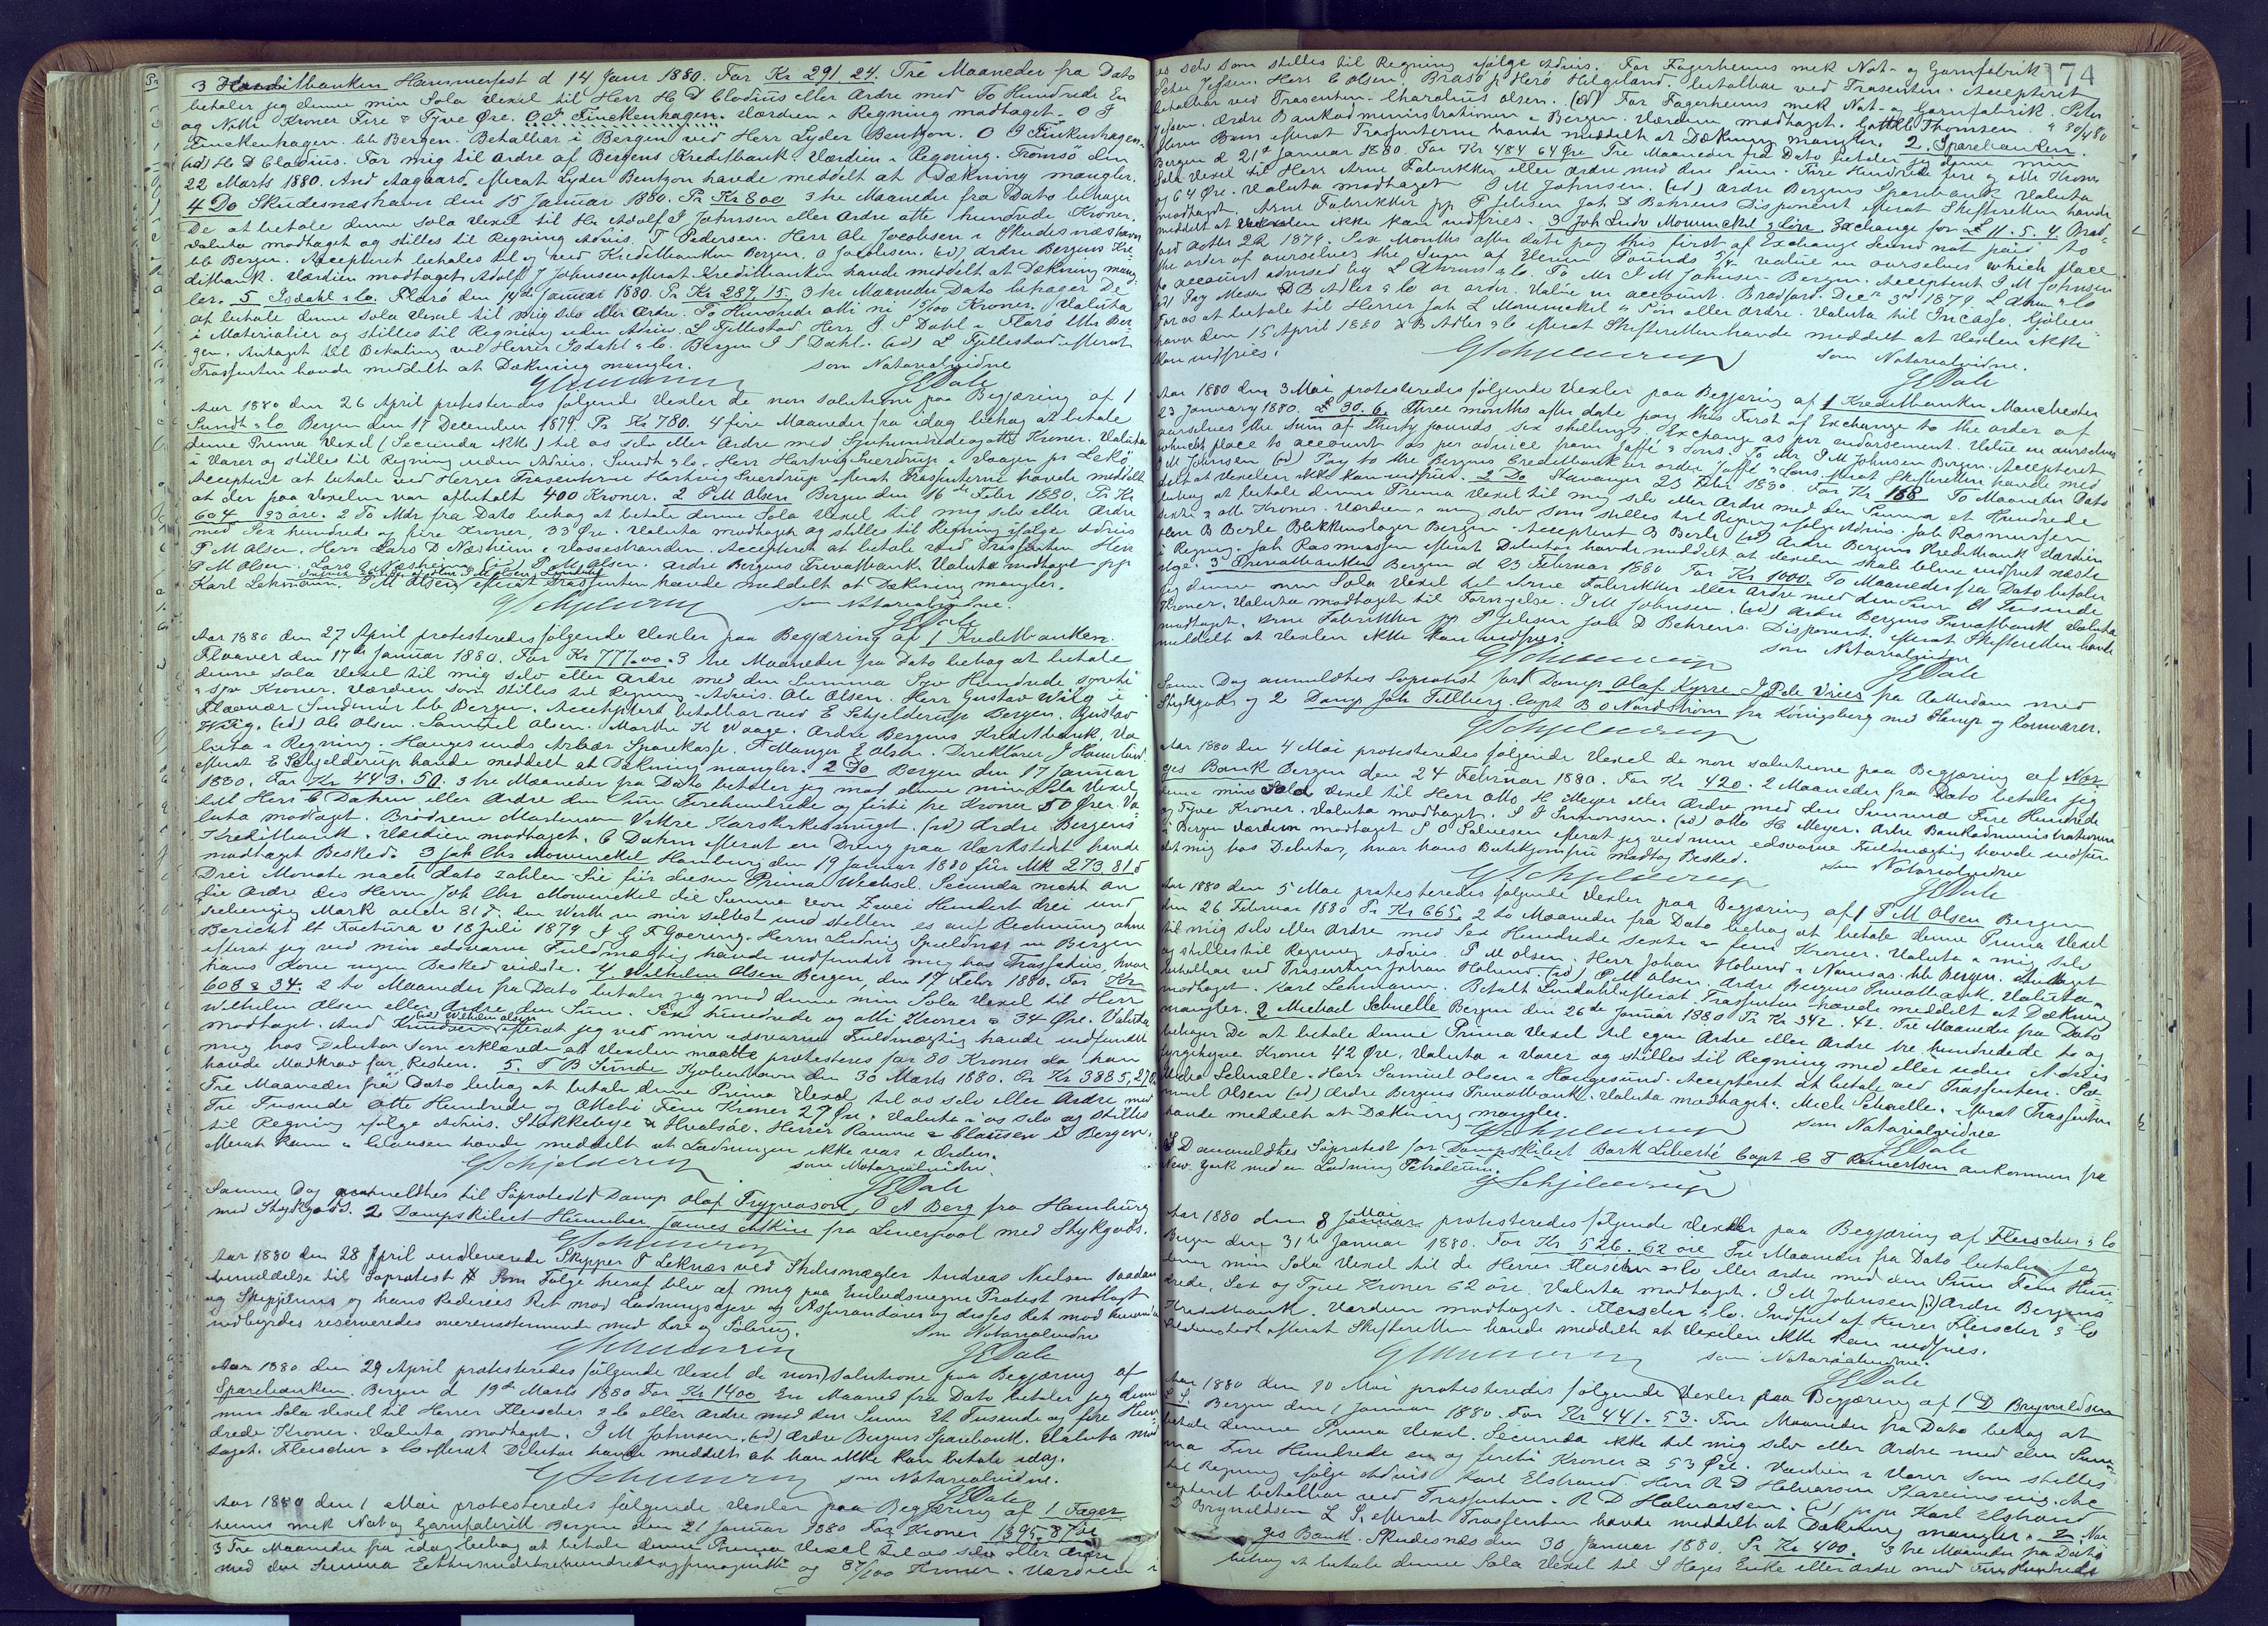 3 Kreditbanken Hammerfest d 14 Janr 1880. For Kr 291 24. Tre Maaneder fra Dato
betaler jeg denne min Sola Vexel til Herr H D Clodius eller Ordre med To Hundrede En
og Nitti Kroner Fire & Tyve Øre. O J Finckenhagen. Værdien i Regning modtaget. O J
Finckenhagen. bb Bergen. Betalbar i Bergen ved Herr Lyder Bentzon. O J Finkenhagen
(id) H D Clodius. For mig til Ordre af Bergens Kreditbank Værdien i Regning. Tromsö den
22 Marts 1880. And Aagaard. efterat Lyder Bentzon havde meddelt at Dækning mangler.
4 Do Skudesnæshavn den 15 Januar 1880. Pr Kr 800 3 tre Maaneder fra Dato behager
De at betale denne Sola Vexel til Hr Adolf J Johnsen eller Ordre otte hundrede Kroner.
Valuta modtaget og stilles til Regning Advis. T Pedersen. Herr Ole Jacobsen i Skudesnæshavn
bb Bergen. Accepteret betales til og ved Kreditbanken Bergen. O Jacobsen. (id) Ordre Bergens Kre-
ditbank. Værdien modtaget. Adolf J Johnsen efterat Kreditbanken havde meddelt at Dækning mang-
ler. 5 Isdahl & Co. Florö den 14de Januar 1880. Pr Kr 289,15. 3 tre Maaneder Dato behager De
at betale denne Sola Vexel til mig selv eller Ordre. To Hundrede otti ni 15/100 Kroner. Valuta
i Materialier og stilles til Regning uden Advis. L Fjellestad Herr J S Dahl i Florö bbr Ber
gen. Antaget til Betaling ved Herrer Isdahl & Co. Bergen J S Dahl. (id) L Fjellestad efterat
Trassenten havde meddelt at Dækning mangler. som Notarialvidne
G Schjelderup J E Dahl
Aar 1880 den 26 April protesteredes følgende Vexler de non solutione paa Begjæring af 1
Sundt & Co Bergen den 17 December 1879. Pr Kr 780. 4 fire Maaneder fra idag behag at betale
denne Prima Vexel (Secunda ikke) til os selv eller Ordre med Syvhundredeogotti Kroner. Valuta
i Varer og stilles til Regning uden Advis. Sundt & Co. Herr Hartvig Sverdrup i Vaagen pr Lekö
Accepteret at betale ved Herrer Trassenterne Hartvig Sverdrup efterat Trassenterne havde meddelt
at der paa Vexelen var afbetalt 400 Kroner. 2 P M Olsen Bergen den 16de Febr 1880. Pr Kr
604 33 öre. 2 To Mdr fra Dato behag at betale denne Sola Vexel til mig selv eller Ordre
med Sex hundrede og fire Kroner, 33 Øre. Valuta modtaget og stilles til Regning ifølge Advis
P M Olsen. Herr Lars D Næsheim i Vossestranden. Accepteret at betale ved Trassenten Herr
P M Olsen. Lars D Næsheim (id) P M Olsen. Ordre Bergens Privatbank. Valuta modtaget pp
Karl Lehmann. P M Olsen efterat Trassenten havde meddelt at Dækning mangler.
G Schjelderup som Notarialvidne.
J E Dahl
Aar 1880 den 27 April protesteredes følgende Vexler paa Begjæring af 1 Kreditbanken.
Floavær den 17de Januar 1880. For Kr 777.00. 3 tre Maaneder fra Dato behag at betale
denne sola Vexel til mig selv eller Ordre med den Summa Syv Hundrede syvti
& syv Kroner. Værdien som stilles til Regning. Advis. Ole Olsen. Herr Gustav Wiig i
Flaavær Søndmør bb Bergen. Acceptert betalbar ved E Schjelderup Bergen. Gustav
Wiig. (id) Ole Olsen. Samuel Olsen. Marthe K Waage. Ordre Bergens Kreditbank. Va
luta i Regning. Haugesunds Arbeider Sparekasse. T Manger E Olsen. Direktører. J Haaverland.
efterat E Schjelderup havde meddelt at Dækning mangler. 2 Do Bergen den 17 Januar
1880. For Kr 443.50. 3 tre Maaneder fra Dato betaler jeg mod denne min Sola Vexel
til Herr C Dahm eller Ordre den Sum Firehundrede og firti tre Kroner 50 Øre. Va
luta modtaget. Brødrene Martensen Vestre Korskirkesmuget. (id) Ordre Bergens
Kreditbank. Værdien modtaget. C Dahm efterat en Dreng paa Værkstedet havde
modtaget Besked. 3 Joh Chr Mowinckel Hamburg den 19 Januar 1880 für Mk 273.81 d
Drei Monate nach dato zahlen Sie für diesen Prima Wechsel. Secunda nicht an
die Ordre des Herrn Joh Chr Mowinckel die Summa von Zwei Hundert drei und
siebenzig Mark auch 81 d. den Werth in mir selbst und stellen es auf Rechnung ohne
Bericht lt Factura v 18 Juli 1879 J G F Goering. Herrn Ludvig Spieldnæs in Bergen
efterat jeg ved min edsvorne Fuldmægtig havde indfundet mig hos Trassatus, hvor
hans Kone ingen Besked vidste. 4 Wilhelm Olsen Bergen, den 17 Febr 1880. For Kr
608 & 34. 2 to Maaneder fra Dato betaler jeg mod denne min Sola Vexel til Herr
Wilhelm Olsen eller Ordre den Sum. Sex hundrede og otti Kroner & 34 Øre. Valuta
modtaget. And Knudsen (id) Wilhelm Olsen efterat jeg ved min edsvorne Fuldmægtig havde indfundet
mig hos Debitor som erklærede at Vexelen maatte protesteres for 80 Kroner da han
havde Modkrav for Resten. 5. T B Sunde Kjøbenhavn den 30 Marts 1880. Pr Kr 3885,27 Ø
Tre Maaneder fra Dato behag at betale denne Prima Vexel til os selv eller Ordre med
Tre Tusinde Otte Hundrede og Ottcti Fem Kroner 27 Øre. Valuta i os selv og stilles
til Regning ifølge Advis. Stokkebye & Hvalsöe. Herrer Ramm & Clausen i Bergen.
efterat Ramm & Clausen havde meddelt at Ladningen ikke var i Orden.
G Schjelderup som Notarialvidne.
J E Dahl
Samme Dag anmeldtes til Søprotest 1 Damp Olaf Trygvason, O A Berg fra Hamburg
med Stykgods. 2. Dampskibet Humber James Askin fra Liverpool med Stykgods.
G Schjelderup
Aar 1880 den 28 April indleverede Skipper P Leknæs ved Skibsmægler Andreas Nielsen saadan
Anmeldelse til Søprotest # Som Følge heraf blev af mig paa Embedsvegne Protest modtaget
og Skipperens og hans Rederies Ret mod Ladningseiere og Assurandører og disses Ret mod hinanden
indbyrdes reserveredes overensstemmende med Lov og Sölvrig. som Notarialvidne
G Schjelderup J E Dahl
Aar 1880 den 29 April protesteredes følgende Vexel de non Solutione paa Begjæring af
Sparebanken. Bergen d 19de Marts 1880 For Kr 1400 En Maaned fra Dato betaler jeg denne
min Sola Vexel til Herrer Fleischer & Co eller Ordre med den Sum Et Tusinde og fire Hun
drede Kroner. Valuta modtaget. J M Johnsen. (id) Ordre Bergens Sparebank. Valuta mod
taget. Fleischer & Co efterat Debitor havde meddelt at han ikke kan betale idag.
G Schjelderup som Notarialvidne.
J E Dahl
Aar 1880 den 1 Mai protesteredes følgende Vexler paa Begjæring af 1 Fager
heims mek Not og Garnfabrik Bergen den 21 Januar 1880 For Kroner 1395 87 öre
3 Tre Maaneder fra idag behag at betale denne Prima Vexel til os selv eller Ordre
med den Summa Ettusindetrehundredeogfemognitti og 87/100 Kroner. Værdien i
174
os selv som stilles til Regning ifølge Advis. For Fagerheims mek Not- og Garnfabrik
Peter Jebsen Herr C Olsen. Brasö pr Herö Helgeland. betalbar ved Trassenten. Accepteret
betalbar ved Trassenten. Charolius Olsen. (id) For Fagerheims mek Not- og Garnfabrik. Peter
Jebsen. Ordre Bankadministrationen i Bergen. Værdien modtaget. Gottlieb Thomsen. 30/4 80
efterat Trassenterne havde meddelt at Dækning mangler. 2. Sparebanken.
Bergen d 21de Januar 1880. For Kr 484 64 Øre Tre Maaneder fra Dato betaler jeg denne min
Sola Vexel til Herr Arne Fabrikker eller Ordre med den Sum. Fire Hundrede fire og otti Kroner
og 64 Øre. Valuta modtaget J M Johnsen. (id) Ordre Bergens Sparebank Valuta
modtaget. Arne Fabrikker pp P Jebsen Joh D Behrens Disponent efterat Skifteretten havde
meddelt at Vexelen ikke kan indfries. 3 Joh Ludv Mowinckel & Sön. Exchange for £ 11.5.4. Brad-
ford Octbr 22 1879. Six Months after date pay this first of Exchange Second not paid to
the order of ourselves the Sum of Eleven Pounds 5/4 value in ourselves which place
to account advised by L Ahrons & Co. To Mr J M Johnsen Bergen. Accepteret J M Johnsen
(id) Pay Messrs D B Adler & Co or order. Value in account. Bradford. Decr 3rd 1879. L Ahrons & Co
For os at betale til Herrer Joh L Mowinckel & Sön eller Ordre. Valuta til Incasso. Kjöben
havn den 15 April 1880 D B Adler & Co efterat Skifteretten havde meddelt at Vexlen ikke
kan indfries. som Notarialvidne.
G Schjelderup J E Dahl
Aar 1880 den 3 Mai protesteredes følgende Vexler paa Begjæring af 1 Kreditbanken Manchester
23 January 1880. £ 30.6. Three months after date pay this First of Exchange to the order of
ourselves the Sum of Thirty pounds six shillings. Exchange as per endorsement. Value in ourselves
which place to account as per advice from Jaffé & Sons. To Mr J M Johnsen Bergen. Accepteret
J M Johnsen (id) Pay to the Bergens Creditbank or order Jaffé & Sons efterat Skifteretten havde med
delt at Vexelen ikke kan indfries. 2 Do Stavanger 23 Febr 1880 For Kr 168 To Maaneder Dato
behag at betale denne Prima Vexel til mig selv eller Ordre med den Summa et Hundrede
sexti & otti Kroner. Værdien i mig selv som stilles til Regning ifølge Advis. Joh Rasmussen
Herr B Berle Blikkenslager Bergen. Accepteret B Berle (id) Ordre Bergens Kreditbank Værdien
i Regning. Joh Rasmussen efterat Debitor havde meddelt at Vexelen skal blive indfriet næste
Uge. 3 Privatbanken Bergen d 23 Februar 1880 For Kr 1000. To Maaneder fra Dato betaler
jeg denne min Sola Vexel til Arne Fabrikker eller Ordre med den Sum Et Tusinde
Kroner. Valuta modtaget til Fornyelse. J M Johnsen. (id) Ordre Bergens Privatbank Valuta
modtaget. Arne Fabrikker pp P Jebsen Joh D Behrens. Disponent. efterat Skifteretten havde
meddelt at Vexlen ikke kan indfries. som Notarialvidne
G Schjelderup J E Dahl
Samme Dag anmeldtes Søprotest for 1 Damp Olaf Kyrre J P de Vries fra Rotterdam med
Stykgods og 2 Damp Joh Tillberg. Capt B O Nordström fra Königsberg med Hamp og Kornvarer.
G Schjelderup
Aar 1880 den 4 Mai protesteredes følgende Vexel de non solutione paa Begjæring af Nor
ges Bank Bergen den 24 Februar 1880. For Kr 420. 2 Maaneder fra Dato betaler jeg
denne min Sola Vexel til Herr Otto H Meyer eller Ordre med den Summa Fire Hundrede
og Tyve Kroner. Valuta modtaget. S J Simonsen. (id) Otto H Meyer. Ordre Bankadministrationen
i Bergen Værdien modtaget S O Salvesen efterat jeg ved min edsvorne Fuldmægtig havde indfun
det mig hos Debitor, hvor hans Butikjomfru modtog Besked. som Notarialvidne
G Schjelderup J E Dahl
Aar 1880 den 5 Mai protesteredes følgende Vexler paa Begjæring af 1 P M Olsen Bergen
den 26 Februar 1880 Pr Kr 665. 2 to Maaneder fra Dato behag at betale denne Prima Vexel
til mig selv eller Ordre med Sex Hundrede sexti & fem Kroner. Valuta i mig selv
og stilles til Regning Advis P M Olsen. Herr Johan Holund i Namsos. bb Bergen. Antaget
betalbar ved Trassenten Johan Holund. (id) P M Olsen. Ordre Bergens Privatbank. Valuta
modtaget. Karl Lehmann. Betalt Lindahl efterat Trassenten havde meddelt at Dækning
mangler. 2 Michael Schnelle Bergen den 26de Januar 1880 Pr Kr 342.42 Tre Maaneder fra Dato
behager De at betale denne Prima Vexel til egen Ordre eller Ordre tre hundredede to og
fyrgetyve Kroner 42 Øre. Valuta i Varer og stilles til Regning med eller uden Advis
Michael Schnelle. Herr Samuel Olsen i Haugesund. Accepteret at betale ved Trassenten. Sa
muel Olsen (id) Ordre Bergens Privatbank. Valuta modtaget. Mich Schnelle. efterat Trassenten
havde meddelt at Dækning mangler. som Notarialvidne
G Schjelderup J E Dahl
S D anmeldtes Søprotest for Dampskibet Bark Liberté Capt C F Reinertsen ankommen fra
New York med en Ladning Petroleum.
G Schjelderup
Aar 1880 den 8 Mai protesteredes følgende Vexler paa Begjæring af Fleischer & Co
Bergen den 31te Januar 1880. For Kr 526.62 öre Tre Maaneder fra Dato betaler jeg
denne min Sola Vexel til de Herrer Fleischer & Co eller Ordre med den Sum Fem Hun
drede, Sex og Tyve Kroner 62 öre. Valuta modtaget. J M Johnsen (id) Ordre Bergens
Kreditbank. Værdien modtaget. Fleischer & Co. Indfriet af Herrer Fleischer & Co
efterat Skifteretten havde meddelt at Vexelen ikke kan indfries.
G Schjelderup som Notarialvidne.
J E Dahl
Aar 1880 den 10 Mai protesteredes følgende Vexler paa Begjæring af 1 D Brynildsen
L S. Bergen den 1 Januar 1880. For Kr 441.53. Fire Maaneder fra Dato behag at
betale denne Prima Vexel. Secunda ikke til mig selv eller Ordre med den Sum
ma Fire Hundrede en og firti Kroner & 53 Øre. Værdien i Varer som stilles
til Regning ifølge Advis Karl Elstrand. Herr R D Halvorsen Skareimsvig. Ac
cepteret betalbar ved Trassenten. R D Halvorsen. (id) pp Karl Elstrand
D Brynildsen L S. efterat Trassenten havde meddelt at Dækning mangler. 2 Nor
ges Bank. Skudesnæs den 30 Januar 1880. Pr Kr 400. 3 tre Maaneder fra Dato
behag at betale denne Sola Vexel til S Hages Enke eller Ordre med Fire Hundrede